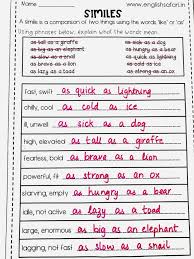 Name
www.englishsafari.in
SIMILES
A simile is a comparison of two things using the words 'like' or 'as'
Using phrases below, explain what the words mean.
as tall as a giraffe
as sick as a dog
as big as an elephant
as hungry as a bear
as brave as a lion
as strong as an ox
as lazy as a toad
as cold as ice
fast, swift as quick as lightning
chilly, cool as cold as ice
ill, unwell as sick as a dog
high, elevated as tall as a giraffe
fearless, bold as brave as a lion
powerful, fit as strong as an ox
starving, empty as hungry as a bear
idle, not active as lazy as a toad
large, enormous as big as an elephant
lagging, not fast as slow as a snail